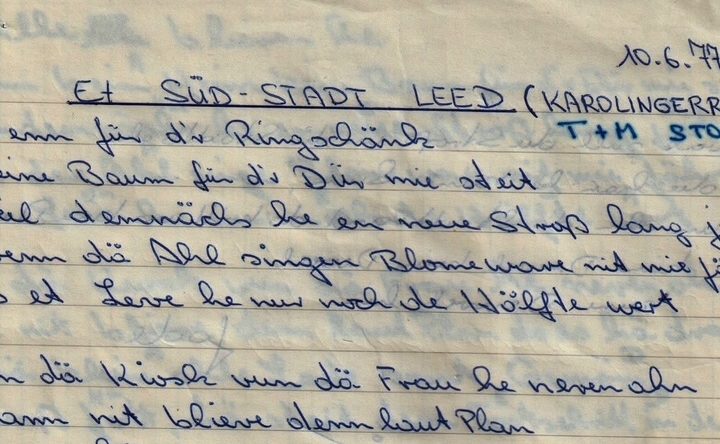 10.6.77
Et SÜD-STADT LEED (KAROLINGERR
enn für d'r Ringschänk T+M STO
eine Baum für d'r Dür mie steit
eil demnächs he en neue Stroß lang j
enn dä Ahl singen Blomeware nit mie fü
s et Leve he nur noch de Hälfte wert
n dä Kiosk vun dä Frau he nevenahn
ann nit blieve denn laut Plan